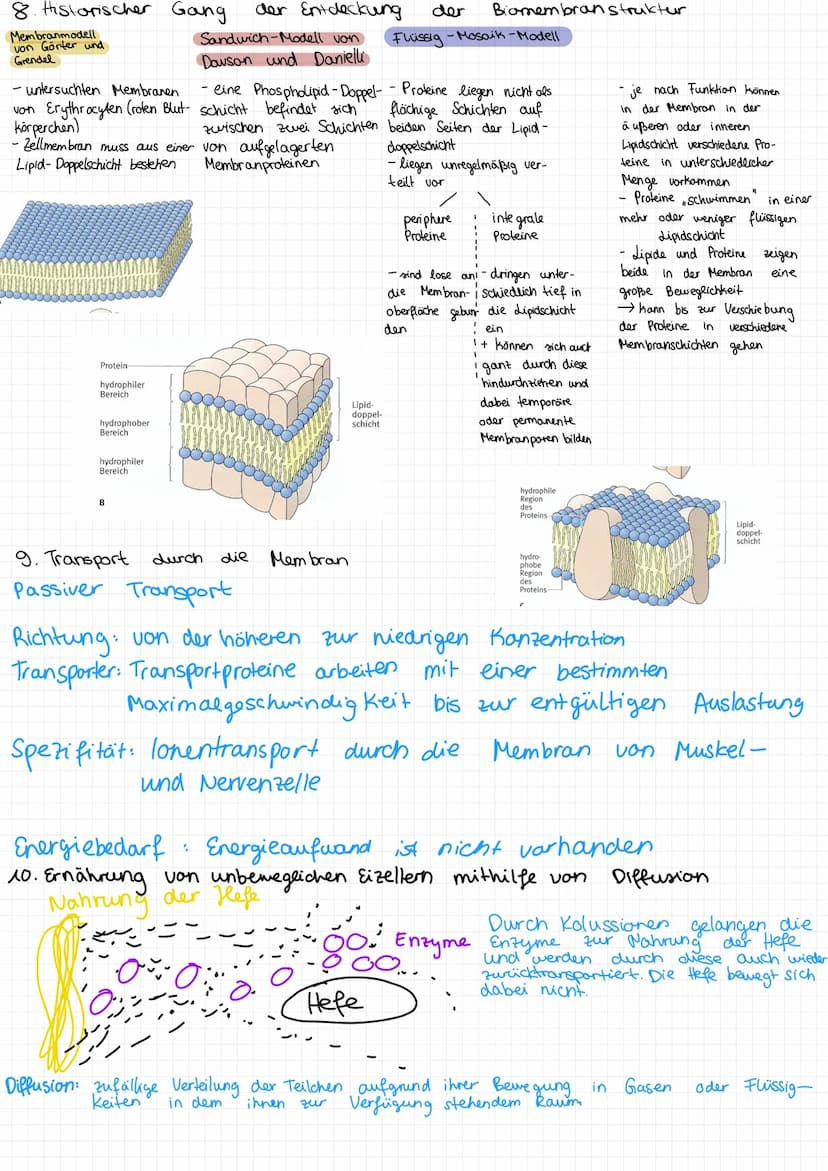 8. Historischer Gang der Entdeckung der Biomembranstruktur
Membranmodell
von Görter und
Grendel
- untersuchten Membranen
von Erythrocyten (roten Blut-
körperchen)
- Zellmembran muss aus einer
Lipid-Doppelschicht bestehen
Sandwich-Modell von
Davson und Danielli
- eine Phospholipid-Doppel-
schicht befindet sich
zwischen zwei Schichten
von aufgelagerten
Membranproteinen
Flüssig-Mosaik-Modell
- Proteine liegen nicht als
flächige Schichten auf
beiden Seiten der Lipid-
doppelschicht
- liegen unregelmäßig ver-
teilt vor
periphere
Proteine
- sind lose an
die Membran-
oberfläche gebun
den
integrale
Proteine
- dringen unter-
schiedlich tief in
die Lipidschicht
ein
+ können sich auch
ganz durch diese
hindurchziehen und
dabei temporäre
oder permanente
Membranporen bilden
- je nach Funktion können
in der Membran in der
äußeren oder inneren
Lipidschicht verschiedene Pro-
teine in unterschiedlicher
Menge vorkommen
- Proteine „schwimmen" in einer
mehr oder weniger flüssigen
Lipidschicht
- Lipide und Proteine zeigen
beide in der Membran eine
große Beweglichkeit
→ kann bis zur Verschiebung
der Proteine in verschiedene
Membranschichten gehen
Protein
hydrophiler
Bereich
hydrophober
Bereich
hydrophiler
Bereich
Lipid-
doppel-
schicht
B
hydrophile
Region
des
Proteins
hydro-
phobe
Region
des
Proteins
Lipid-
doppel-
schicht
9. Transport durch die Membran
Passiver Transport
Richtung: von der höheren zur niedrigen Konzentration
Transporter: Transportproteine arbeiten mit einer bestimmten
Maximalgeschwindigkeit bis zur entgültigen Auslastung
Spezifität: Ionentransport durch die Membran von Muskel-
und Nervenzelle
Energiebedarf: Energieaufwand ist nicht vorhanden
10. Ernährung von unbeweglichen Eizellern mithilfe von Diffusion
Nahrung der Hefe
Enzyme
Hefe
Durch Kolussionen gelangen die
Enzyme zur Nahrung der Hefe
und werden durch diese auch wieder
zurücktransportiert. Die Hefe bewegt sich
dabei nicht.
Diffusion: zufällige Verteilung der Teilchen aufgrund ihrer Bewegung in Gasen oder Flüssig-
keiten in dem ihnen zur Verfügung stehendem Raum